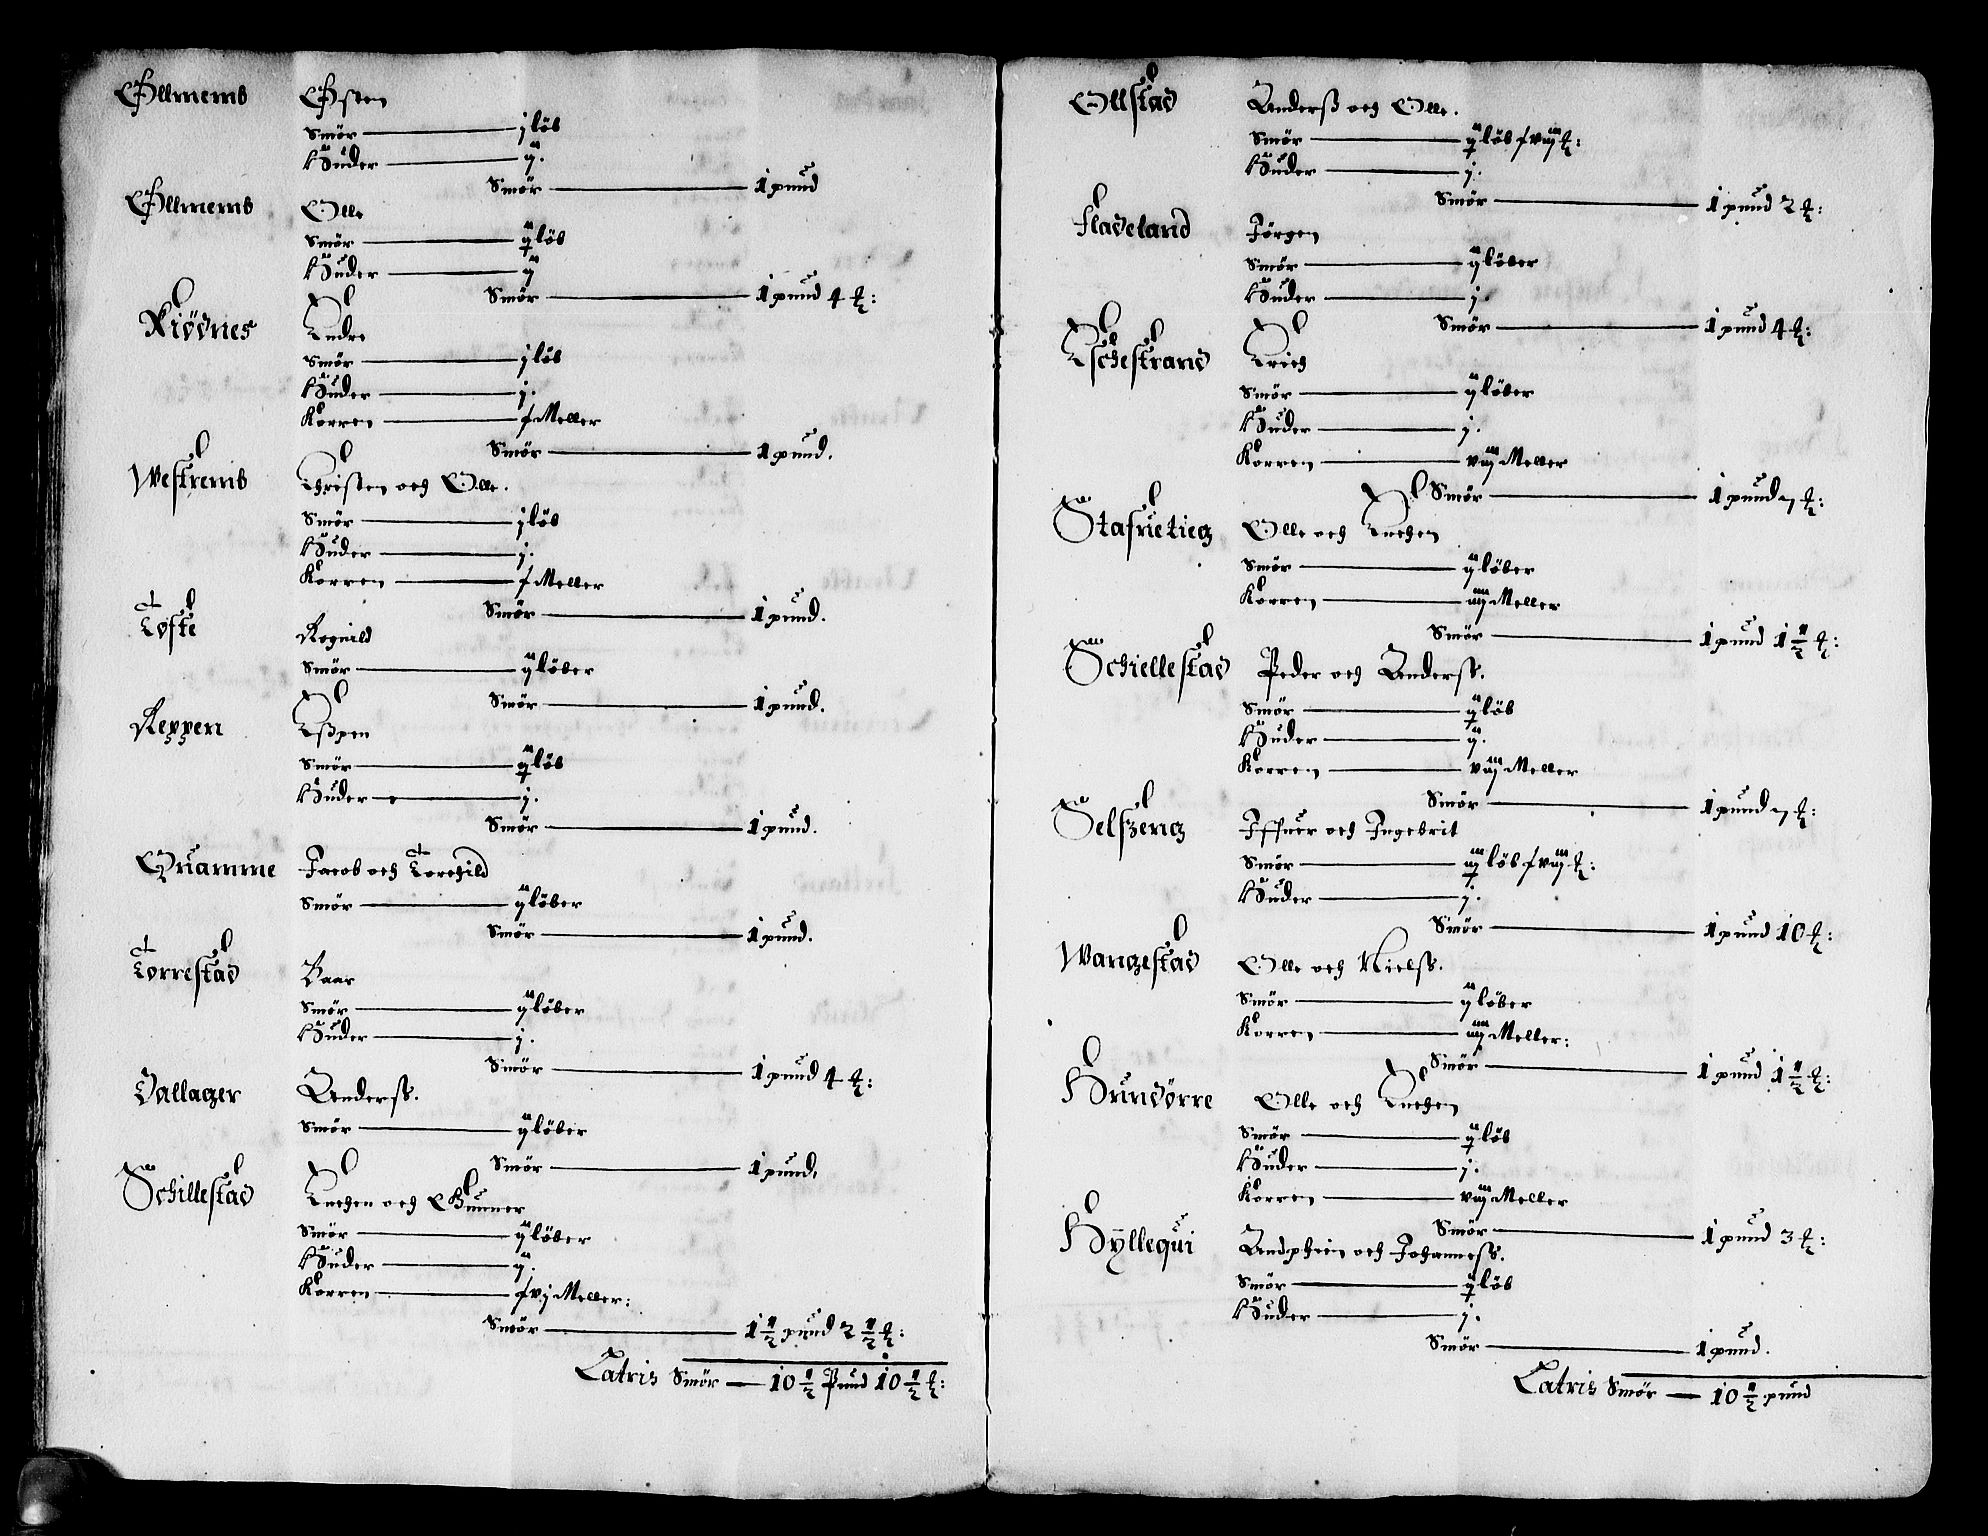 Øllmemb Østen
Smör — j löb
Huder — ij.
Smör — 1 pund
Øllmemb Olle
Smör — ij löb
Huder — ij
Smör — 1 pund 4 ℔:
Kiödnes Endre
Smör — j löb
Huder — j.
Korren — f Meller
Smör — 1 pund.
Westremb Christen och Olle.
Smör — j löb
Huder — j.
Korren — f Meller
Smör — 1 pund.
Tofte Rognild
Smör — ij löber
Smör — 1 pund.
Reppen Eßpen
Smör — ij löb
Huder — j.
Smör — 1 pund.
Quamme Jacob och Torchild
Smör — ij löber
Smör — 1 pund.
Torrestad Baar
Smör — ij löber
Huder — j.
Smör — 1 pund 4 ℔:
Dallager Anderss.
Smör — ij löber
Smör — 1 pund.
Schillestad Enchen och Gunner
Smör — ij löber
Huder — ij.
Korren — f vj Meller:
Smör — 1 ½ pund 2 ½ ℔:
Latris Smör — 10 ½ Pund 10 ½ ℔:
Ollstad Anderß och Olle.
Smör — ij löb f viij ℔:
Huder — j.
Smör — 1 pund 2 ℔:
Fladeland Jörgen
Smör — ij löber
Huder — j.
Smör — 1 pund 4 ℔:
Eschestrand Erich
Smör — ij löber
Huder — j.
Korren — viij Meller
Smör — 1 pund 7 ℔:
Olle och Enchen
Smör — ij löber
Korren — iiij Meller
Smör — 1 pund 1 ½ ℔:
Schiellestad Peder och Anderss.
Smör — ij löb
Huder — ij.
Korren — viij Meller
Smör — 1 pund 7 ℔:
Selszeng Iffuer och Ingebrit
Smör — iij löb f viij ℔:
Huder — j.
Smör — 1 pund 10 ℔:
Wangestad Olle och Nielss.
Smör — ij löber
Korren — iiij Meller:
Smör — 1 pund 1 ½ ℔:
Hundörre Olle och Enchen
Smör — ij löb
Huder — j.
Korren — viij Meller
Smör — 1 pund 3 ℔:
Hÿllequi Andphin och Johanness.
Smör — ij löb
Huder — j.
Smör — 1 pund.
Latris Smör — 10 ½ pund